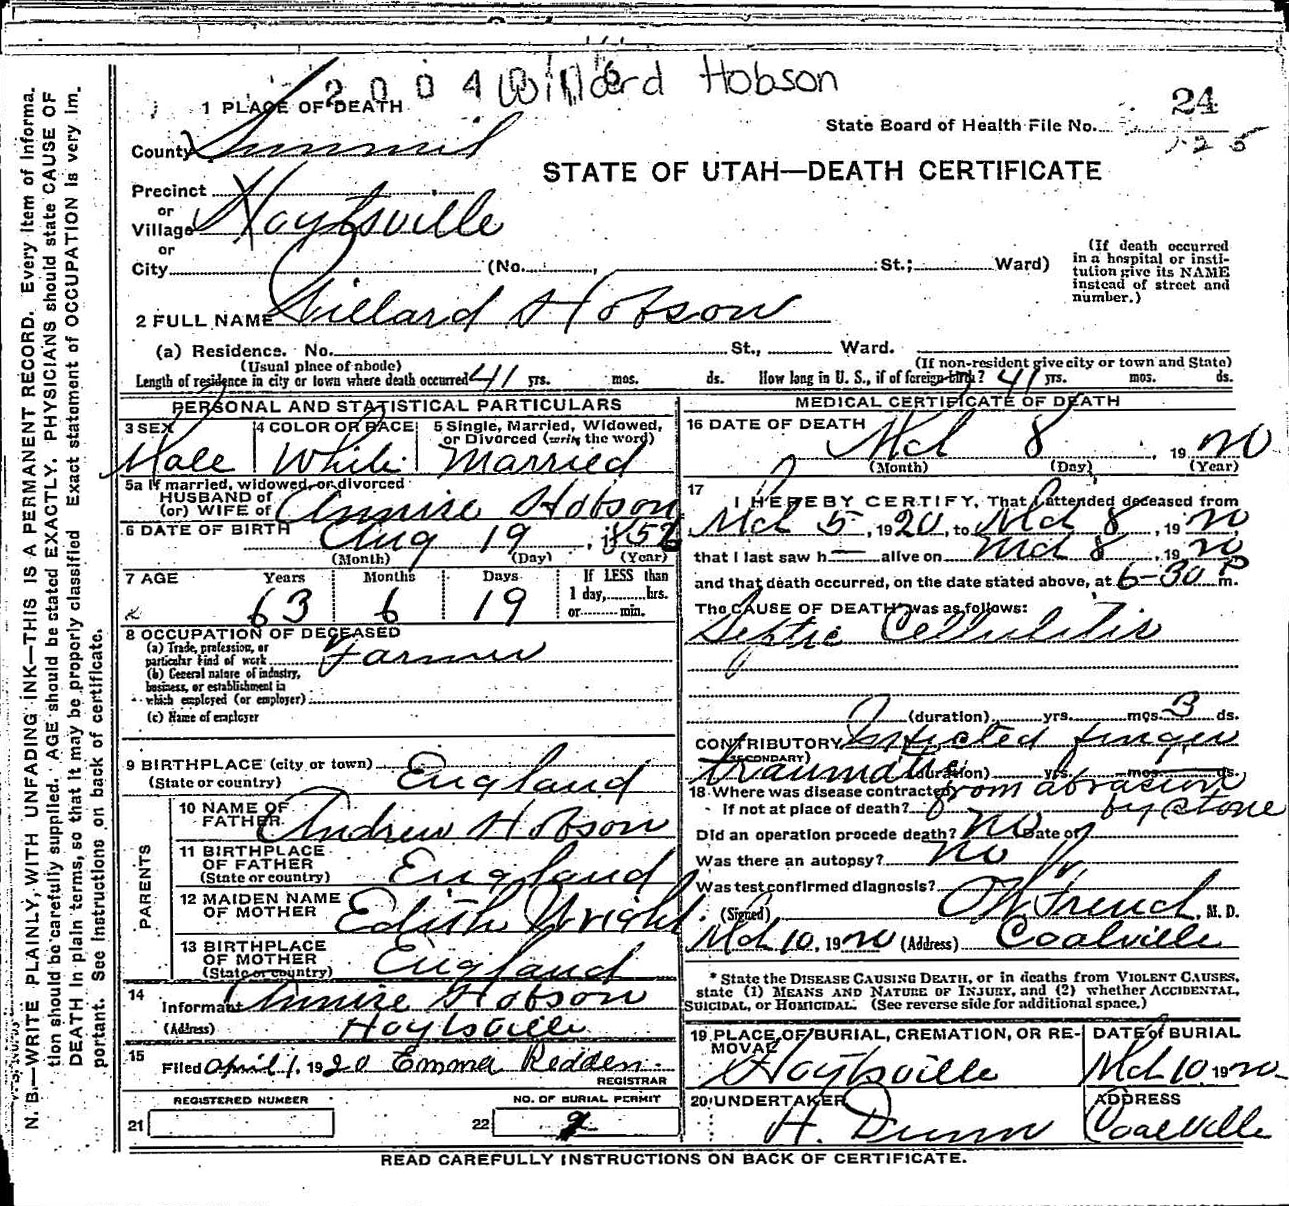 20040 Willard Hobson
24
1 PLACE OF DEATH
State Board of Health File No.
125
County Summit
STATE OF UTAH—DEATH CERTIFICATE
Precinct
or
Village Hoytsville
or
City (No. , St.; Ward)
(If death occurred in a hospital or institution give its NAME instead of street and number.)
2 FULL NAME Willard Hobson
(a) Residence. No. St., Ward.
(Usual place of abode) (If non-resident give city or town and State)
Length of residence in city or town where death occurred 41 yrs. mos. ds. How long in U. S., if of foreign birth? 41 yrs. mos. ds.
PERSONAL AND STATISTICAL PARTICULARS
3 SEX 4 COLOR OR RACE 5 Single, Married, Widowed, or Divorced (write the word)
Male White Married
5a If married, widowed, or divorced
HUSBAND of
(or) WIFE of Annire Hobson
6 DATE OF BIRTH Aug 19, 1856
(Month) (Day) (Year)
7 AGE Years Months Days If LESS than
1 day, hrs.
or min.
63 6 19
8 OCCUPATION OF DECEASED
(a) Trade, profession, or
particular kind of work Farmer
(b) General nature of industry,
business, or establishment in
which employed (or employer)
(c) Name of employer
9 BIRTHPLACE (city or town)
(State or country) England
PARENTS
10 NAME OF
FATHER Andrew Hobson
11 BIRTHPLACE
OF FATHER
(State or country) England
12 MAIDEN NAME
OF MOTHER Edith Wright
13 BIRTHPLACE
OF MOTHER
(State or country) England
14
Informant Annire Hobson
(Address) Hoytsville
15
Filed April 1, 1920 Emma Redden.
REGISTRAR
REGISTERED NUMBER NO. OF BURIAL PERMIT
21 22
MEDICAL CERTIFICATE OF DEATH
16 DATE OF DEATH
Mch 8, 1920
(Month) (Day) (Year)
17
I HEREBY CERTIFY, That I attended deceased from
Mch 5, 1920, to Mch 8, 1920
that I last saw h— alive on Mch 8, 1920
and that death occurred, on the date stated above, at 6-30 P m.
The CAUSE OF DEATH was as follows:
Septic Cellulitis
(duration) yrs. mos. 3 ds.
CONTRIBUTORY Infected finger
(SECONDARY)
traumatic (duration) yrs. mos. ds.
18 Where was disease contracted from abrasion
If not at place of death? by stone
Did an operation precede death? no Date of
Was there an autopsy? no
Was test confirmed diagnosis?
(Signed) French, M. D.
Mch 10, 1920 (Address) Coalville
* State the DISEASE CAUSING DEATH, or in deaths from VIOLENT CAUSES,
state (1) MEANS AND NATURE OF INJURY, and (2) whether ACCIDENTAL,
SUICIDAL, or HOMICIDAL. (See reverse side for additional space.)
19 PLACE OF BURIAL, CREMATION, OR RE- DATE of BURIAL
MOVAL
Hoytsville Mch 10 1920
20 UNDERTAKER ADDRESS
H. Dunn Coalville
READ CAREFULLY INSTRUCTIONS ON BACK OF CERTIFICATE.
N. B.—WRITE PLAINLY, WITH UNFADING INK—THIS IS A PERMANENT RECORD. Every item of informa-
tion should be carefully supplied. AGE should be stated EXACTLY. PHYSICIANS should state CAUSE OF
DEATH in plain terms, so that it may be properly classified. Exact statement of OCCUPATION is very im-
portant. See instructions on back of certificate.